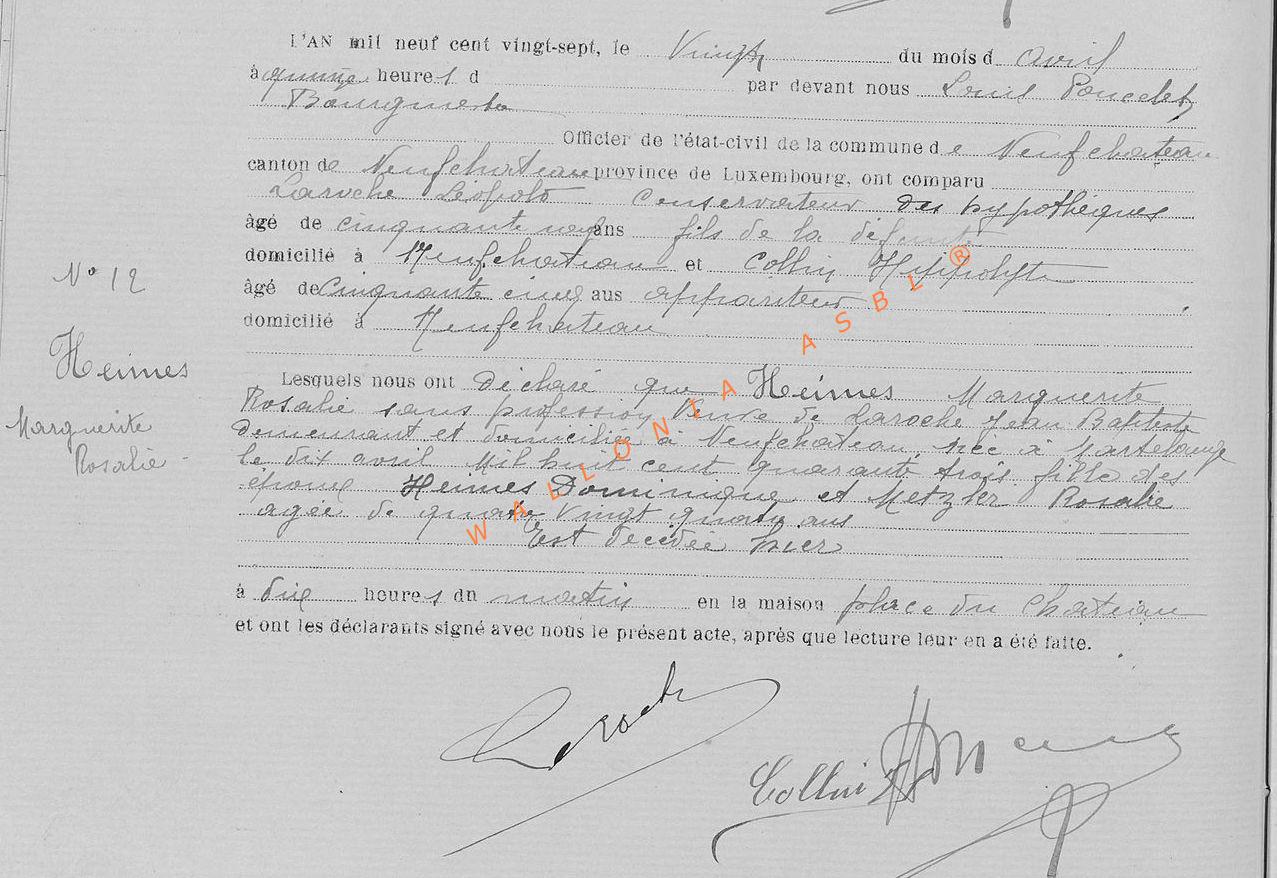 L'AN mil neuf cent vingt-sept, le Vingt du mois d Avril
à quinze heures d par devant nous Louis Poncelet
Bourgmestre
Officier de l'état-civil de la commune de Neufchateau
canton de Neufchateau province de Luxembourg, ont comparu
Laroche Léopold Conservateur des hypothèques
âgé de cinquante neuf ans fils de la défunte
domicilié à Neufchateau et Collin Hippolyte
âgé de Cinquante cinq ans appariteur
domicilié à Neufchateau
N° 12
Heimes
Marguerite
Rosalie
Lesquels nous ont déclaré que Heimes Marguerite
Rosalie sans profession, Veuve de Laroche Jean Baptiste
demeurant et domiciliée à Neufchateau, née à Martelange
le dix avril Mil huit cent quarante trois fille des
époux Heimes Dominique et Metzler Rosalie
agée de quatre Vingt quatre ans
Est décédée hier
à dix heures du matin en la maison place du Chateau
et ont les déclarants signé avec nous le présent acte, après que lecture leur en a été faite.
Laroche
Collin H
WALLONIA ASBL ®